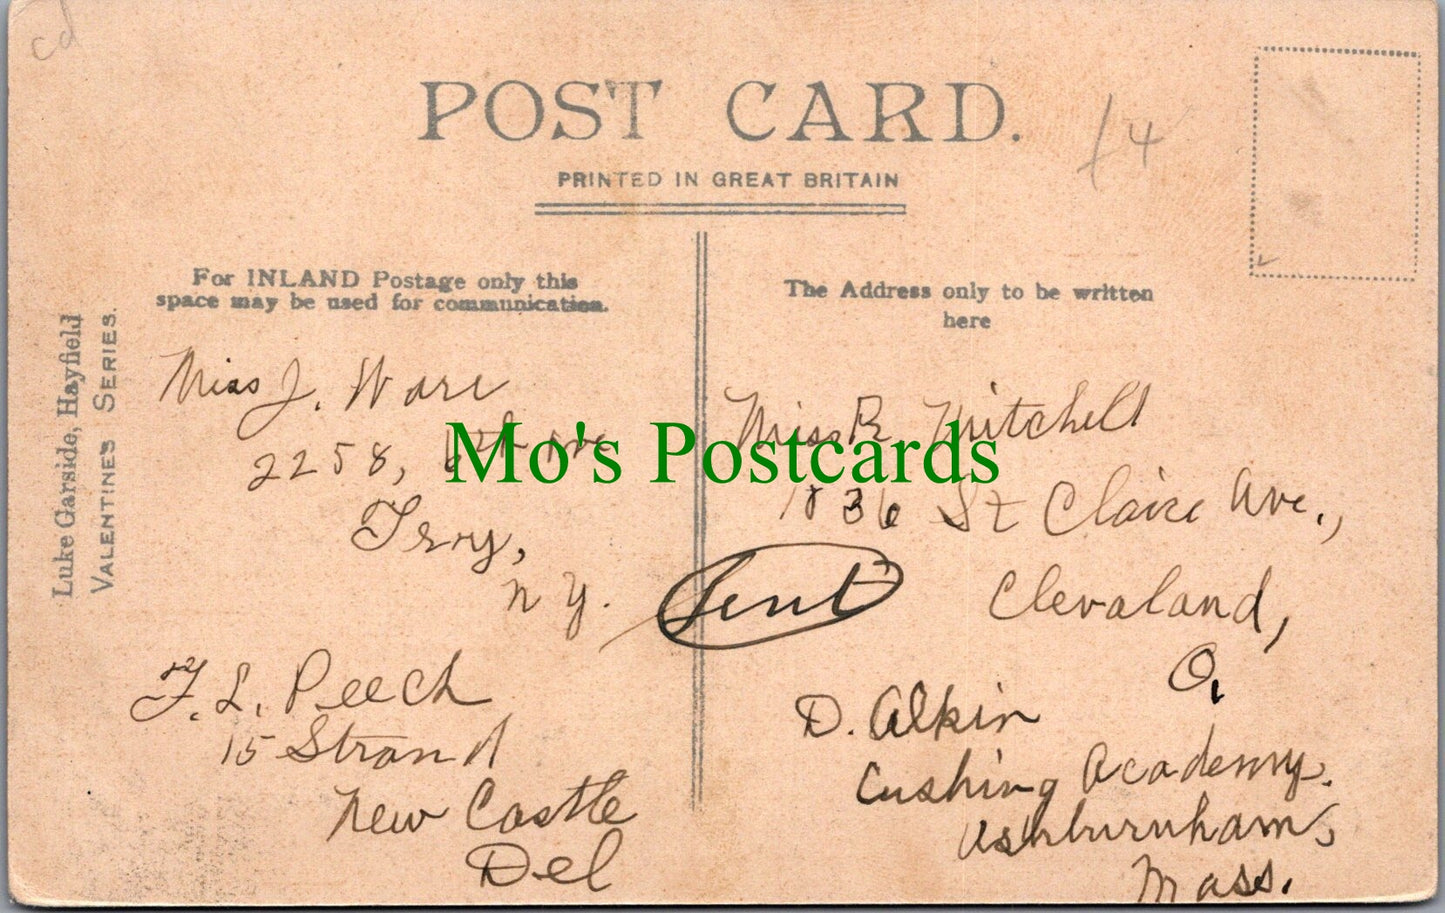 cd
POST CARD.
£4
PRINTED IN GREAT BRITAIN
For INLAND Postage only this
space may be used for communication.
The Address only to be written
here
Luke Garside, Hayfield
VALENTINES SERIES.
Miss J. Ware
2258, 6th Ave
Troy,
N Y.
Miss R Mitchell
1836 St Claire Ave.,
Cleveland,
O.
Sent
Mo's Postcards
F. L. Peech
15 Strand
New Castle
Del
D. Alkin
Cushing Academy.
Ashburnham,
Mass.